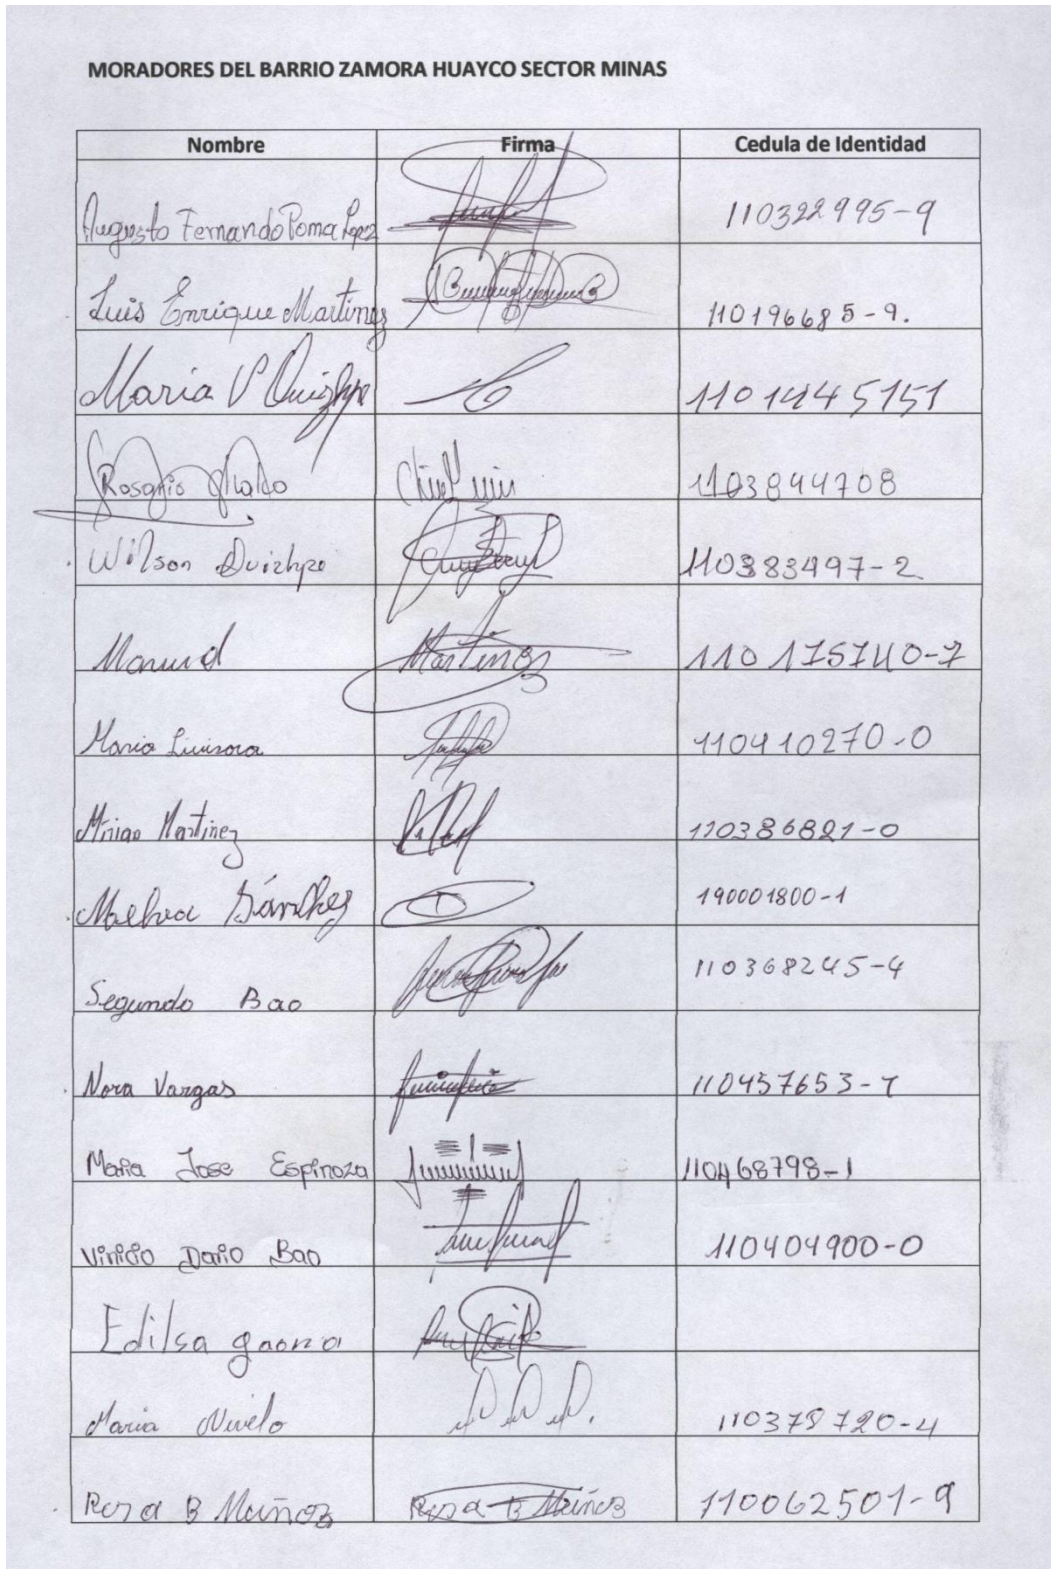 MORADORES DEL BARRIO ZAMORA HUAYCO SECTOR MINAS
Nombre Firma Cedula de Identidad
Augusto Fernando Poma Lopez 110322995-9
Luis Enrique Martinez 110196685-9.
Maria V Quizhpe 1101445151
Rosario 1103844708
Wilson Quizhpe 110383497-2
Manuel Martinez 110175740-7
Maria 110410270-0
Martinez 110386821-0
Sánchez 190001800-1
Segundo Bao 110368245-4
Nora Vargas 110457653-7
Maria Jose Espinoza 110468798-1
Vinicio Dario Bao 110404900-0
Edilsa gaona
Maria Nivelo 110378720-4
Rosa B Muñoz Rosa B Muñoz 110062501-9